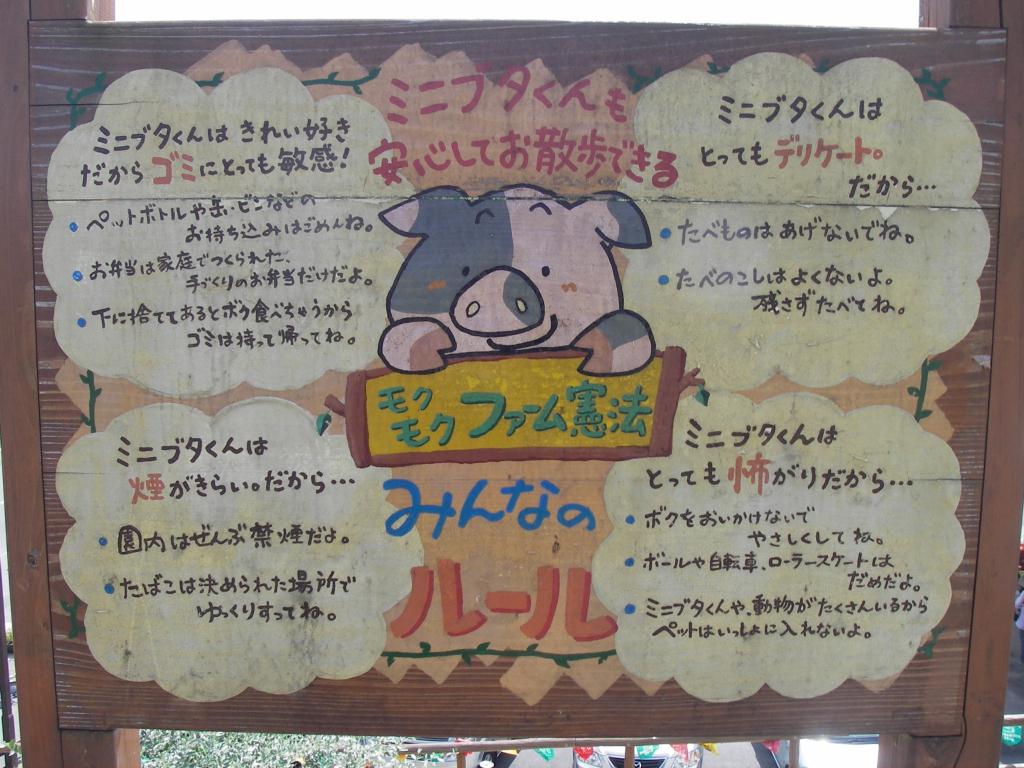 ミニブタくんも
安心してお散歩できる
モクモクファーム憲法
みんなの
ルール
ミニブタくんは きれい好き
だから ゴミにとっても敏感!
・ペットボトルや缶、ビンなどの
お持ち込みはごめんね。
・お弁当は家庭でつくられた、
手づくりのお弁当だけだよ。
・下に捨ててあるとボク食べちゃうから
ゴミは持って帰ってね。
ミニブタくんは
とってもデリケート。
だから…
・たべものは あげないでね。
・たべのこしはよくないよ。
残さずたべてね。
ミニブタくんは
煙がきらい。だから…
・園内はぜんぶ禁煙だよ。
・たばこは決められた場所で
ゆっくりすってね。
ミニブタくんは
とっても怖がりだから…
・ボクをおいかけないで
やさしくしてね。
・ボールや自転車、ローラースケートは
だめだよ。
・ミニブタくんや、動物がたくさんいるから
ペットはいっしょに入れないよ。